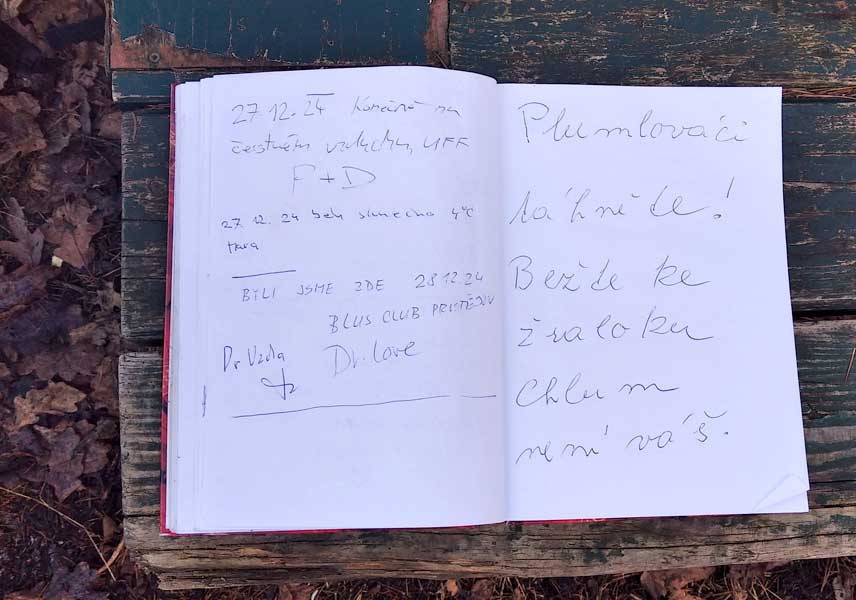 27.12.24 Konečně na
čerstvém vzduchu, UFF
F+D
27.12.24 slunečno 4°C
BYLI JSME ZDE 28.12.24
BLUS CLUB PROSTĚJOV
Dr. Vzdta Dr. Love
Plumlováci
táhněte!
Bežte ke
žraloku
Chlum
není váš.